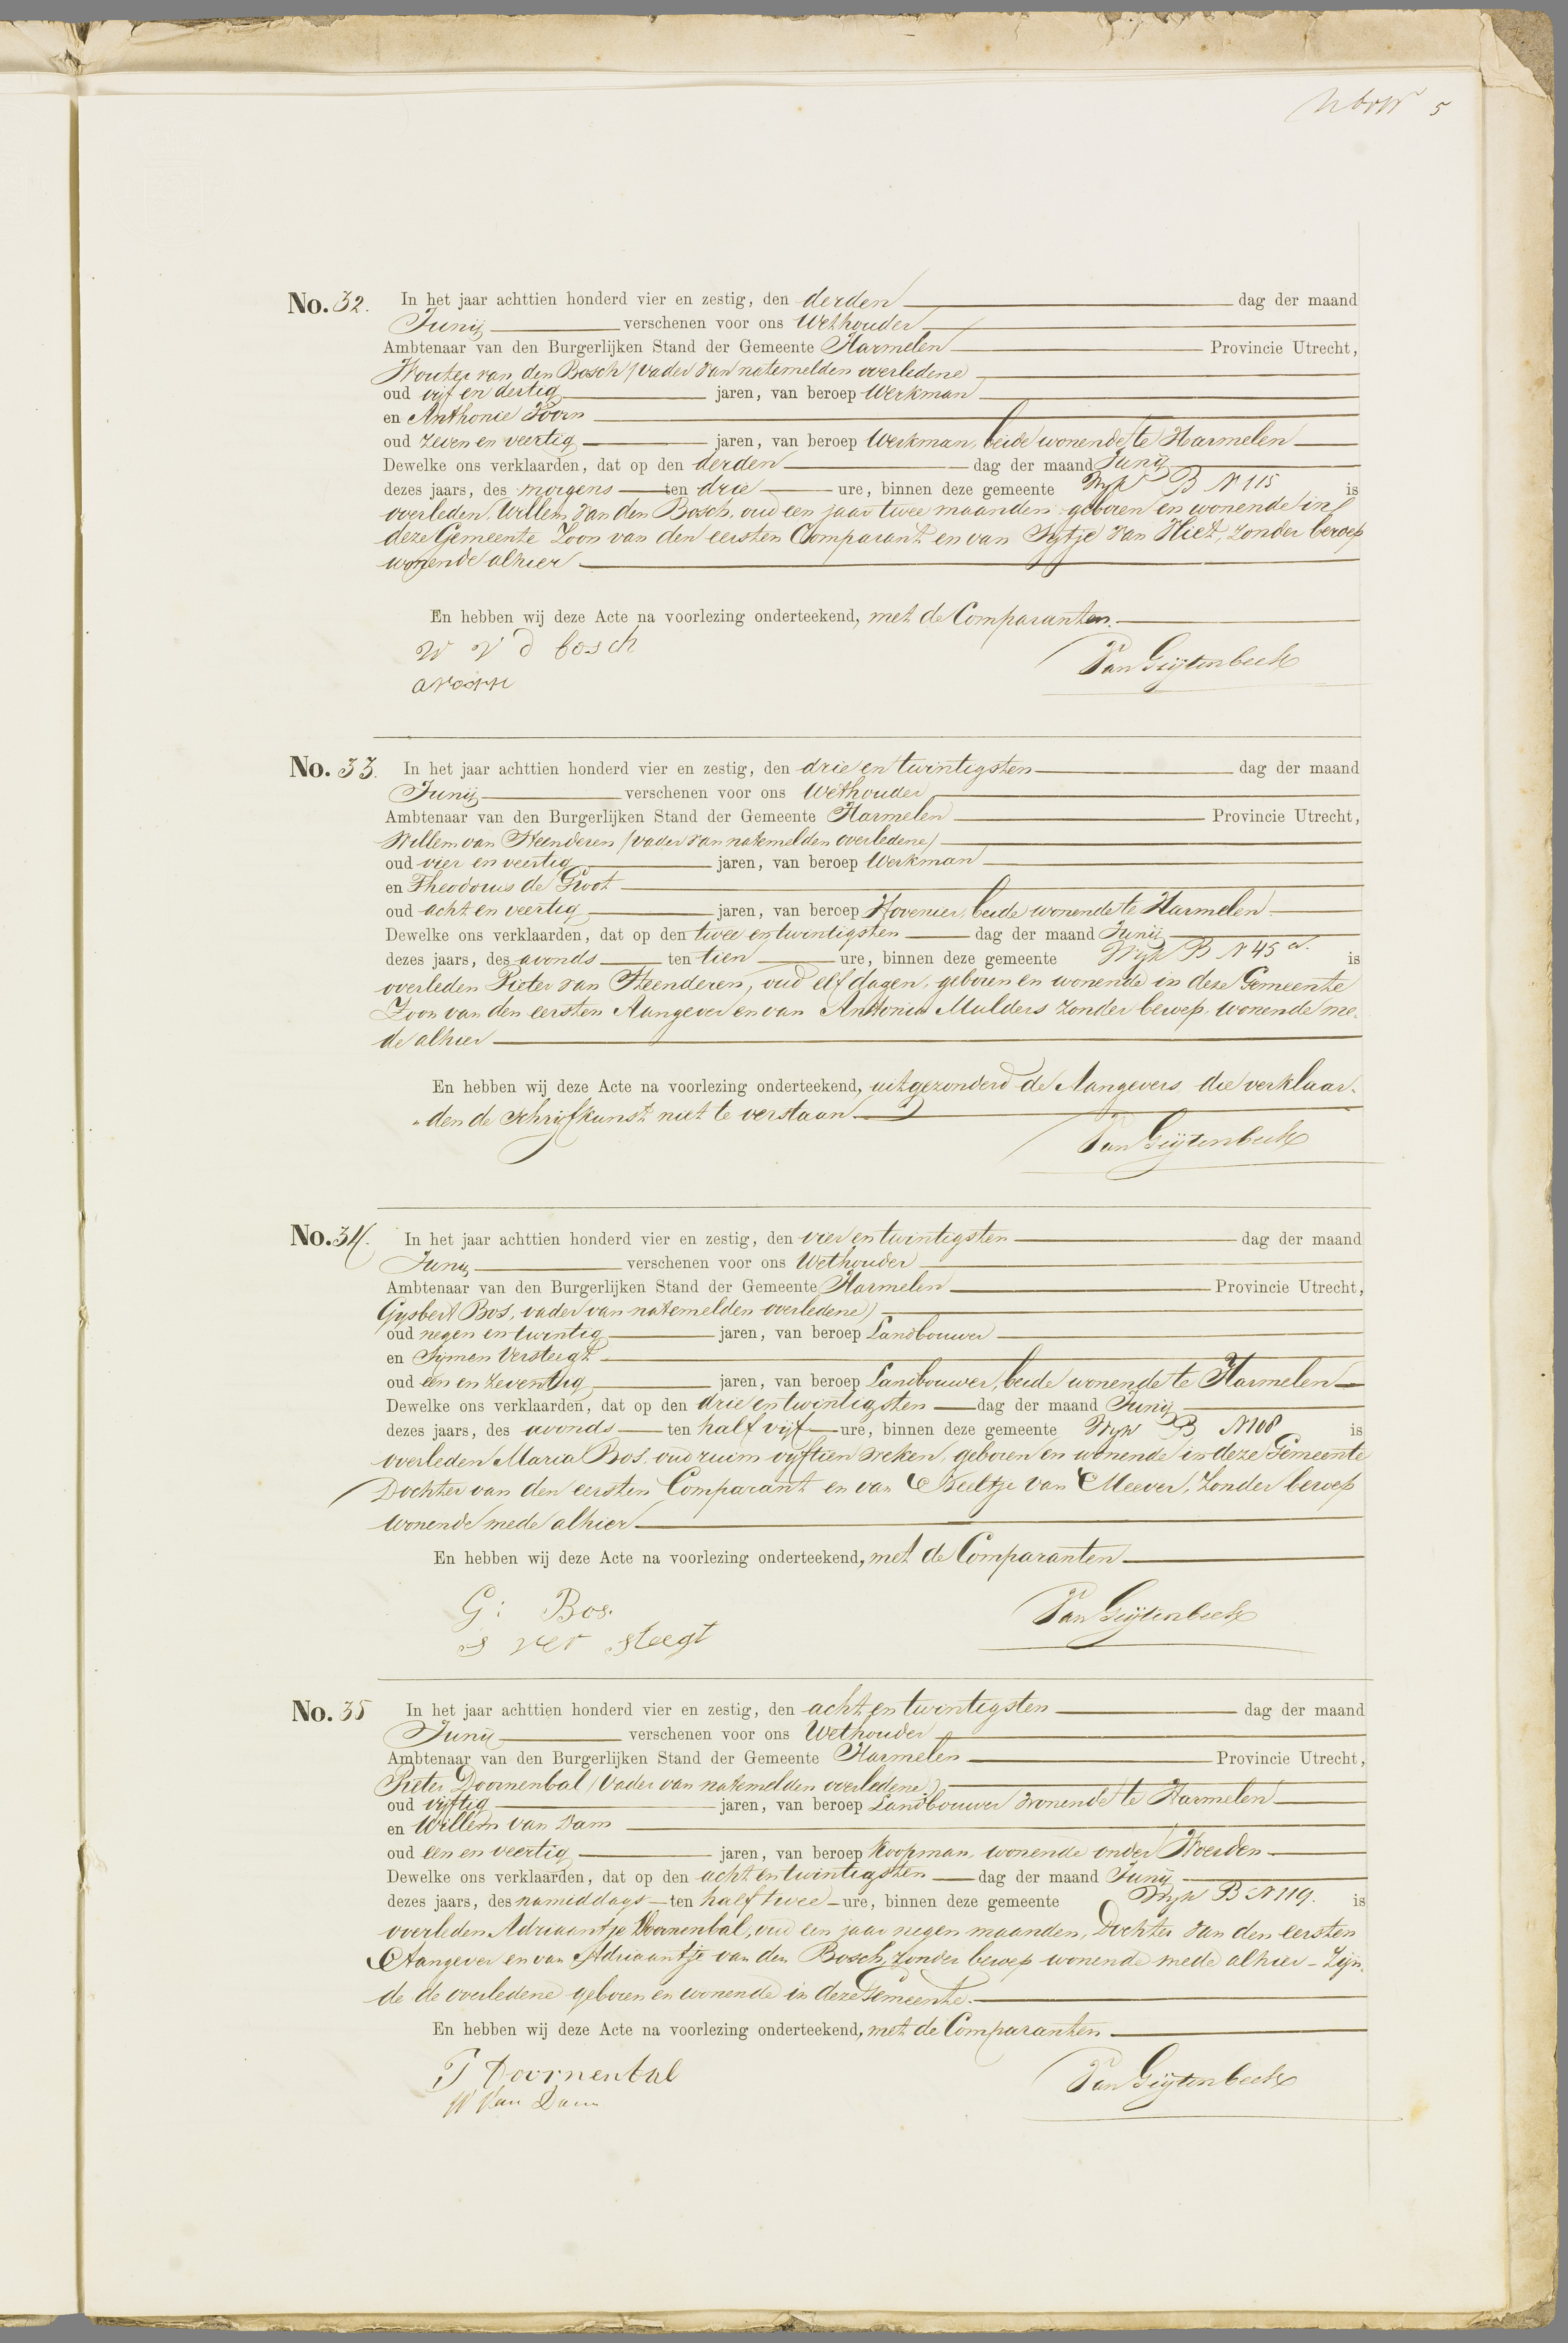 5
No. 32. In het jaar achttien honderd vier en zestig, den derden dag der maand
Junij verschenen voor ons Wethouder
Ambtenaar van den Burgerlijken Stand der Gemeente Harmelen Provincie Utrecht,
Wouter van den Bosch (vader van natemelden overledene)
oud vijf en dertig jaren, van beroep Werkman
en Anthonie
oud zeven en veertig jaren, van beroep Werkman, beide wonende te Harmelen
Dewelke ons verklaarden, dat op den derden dag der maand Junij
dezes jaars, des morgens ten drie ure, binnen deze gemeente Wijk B N 115 is
overleden, Willem van den Bosch, oud een jaar twee maanden geboren en wonende in
deze Gemeente Zoon van den eersten Comparant en van Sijtje van Vliet, zonder beroep
wonende alhier
En hebben wij deze Acte na voorlezing onderteekend, met de Comparanten.
W v d bosch Van Geijtenbeek
No. 33. In het jaar achttien honderd vier en zestig, den drie en twintigsten dag der maand
Junij verschenen voor ons Wethouder
Ambtenaar van den Burgerlijken Stand der Gemeente Harmelen Provincie Utrecht,
Willem van Steenderen (vader van natemelden overledene)
oud vier en veertig jaren, van beroep Werkman
en Theodorus de Groot
oud acht en veertig jaren, van beroep Hovenier, beide wonende te Harmelen
Dewelke ons verklaarden, dat op den twee en twintigsten dag der maand Junij
dezes jaars, des avonds ten tien ure, binnen deze gemeente Wijk B N 45 a. is
overleden Pieter van Steenderen, oud elf dagen, geboren en wonende in deze Gemeente
Zoon van den eersten Aangever en van Antonia Mulders zonder beroep, wonende me-
de alhier
En hebben wij deze Acte na voorlezing onderteekend, uitgezonderd de Aangevers die verklaar-
den de Schrijfkunst niet te verstaan
Van Geijtenbeek
No. 34. In het jaar achttien honderd vier en zestig, den vier en twintigsten dag der maand
Junij verschenen voor ons Wethouder
Ambtenaar van den Burgerlijken Stand der Gemeente Harmelen Provincie Utrecht,
Gijsbert Bos, vader van natemelden overledene)
oud negen en twintig jaren, van beroep Landbouwer
en Sijmen Versteegt
oud een en zeventig jaren, van beroep Landbouwer, beide wonende te Harmelen
Dewelke ons verklaarden, dat op den drie en twintigsten dag der maand Junij
dezes jaars, des avonds ten half vijf ure, binnen deze gemeente Wijk B N 108 is
overleden Maria Bos, oud ruim vijftien weken, geboren en wonende in deze Gemeente
Dochter van den eersten Comparant en van Neeltje van Meever, zonder beroep
wonende mede alhier
En hebben wij deze Acte na voorlezing onderteekend, met de Comparanten
G: Bos. Van Geijtenbeek
s ver steegt
No. 35 In het jaar achttien honderd vier en zestig, den acht en twintigsten dag der maand
Junij verschenen voor ons Wethouder
Ambtenaar van den Burgerlijken Stand der Gemeente Harmelen Provincie Utrecht,
Pieter Doornenbal (Vader van natemelden overledene)
oud vijftig jaren, van beroep Landbouwer wonende te Harmelen
en Willem van Dam
oud een en veertig jaren, van beroep Koopman, wonende onder Woerden
Dewelke ons verklaarden, dat op den acht en twintigsten dag der maand Junij
dezes jaars, des namiddags ten half twee ure, binnen deze gemeente Wijk B N 119. is
overleden Adriaantje Doornenbal, oud een jaar negen maanden, Dochter van den eersten
Aangever en van Adriaantje van den Bosch, zonder beroep wonende mede alhier - Zijn-
de de overledene geboren en wonende in deze Gemeente.
En hebben wij deze Acte na voorlezing onderteekend, met de Comparanten
P Doornenbal Van Geijtenbeek
W Van Dam